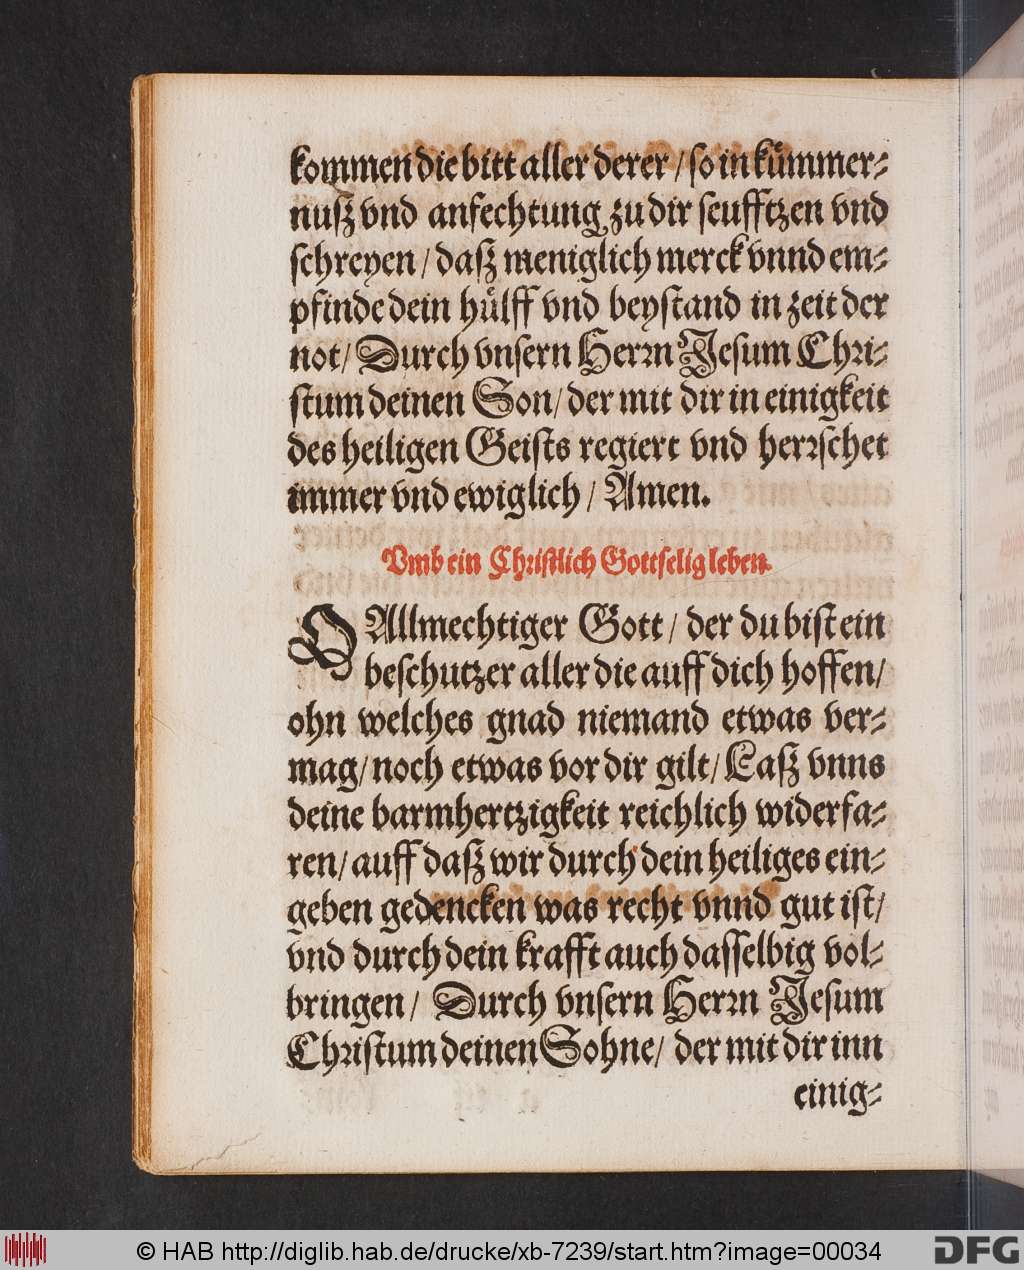 kommen die bitt aller derer / so in kümmer⸗
nuß vnd anfechtung zu dir seufftzen vnd
schreyen / daß meniglich merck vnnd em⸗
pfinde dein hülff vnd beystand in zeit der
not / Durch vnsern Herrn Jesum Chri⸗
stum deinen Son / der mit dir in einigkeit
des heiligen Geists regiert vnd herrschet
immer vnd ewiglich / Amen.
Vmb ein Christlich Gottselig leben.
O Allmechtiger Gott / der du bist ein
beschutzer aller die auff dich hoffen /
ohn welches gnad niemand etwas ver⸗
mag / noch etwas vor dir gilt / Laß vnns
deine barmhertzigkeit reichlich widerfa⸗
ren / auff daß wir durch dein heiliges ein⸗
geben gedencken was recht vnnd gut ist /
vnd durch dein krafft auch dasselbig vol⸗
bringen / Durch vnsern Herrn Jesum
Christum deinen Sohne / der mit dir inn
einig⸗
© HAB http://diglib.hab.de/drucke/xb-7239/start.htm?image=00034
DFG